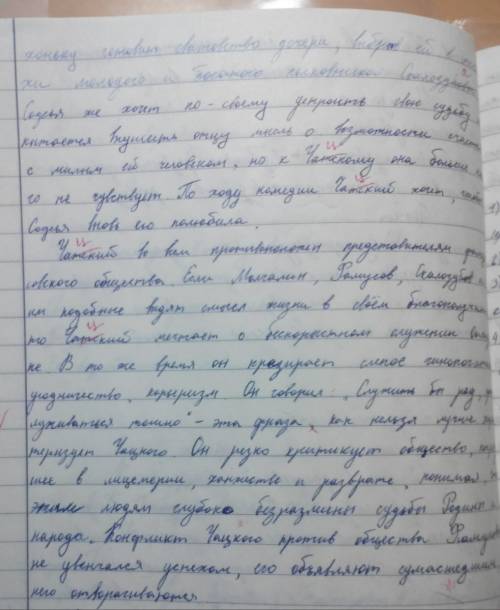 хоньку готовит сватовство дочери, выбрав ей в
жи молодого и богатого полковника Скалозуба
Софья же хочет по-своему устроить свою судьбу
пытается внушить отцу мысль о возможности счастья
с милым ей человеком, но к Чатскому она больше ни
го не чувствует. По ходу комедии Чатский хочет, чтобы
Софья вновь его полюбила.
Чатский во всем противоположен представителям
совского общества. Если Молчалин, Фамусов, Скалозуб и
им подобные видят смысл жизни в своём благополучии
то Чатский мечтает о бескорыстном служении
не В то же время он презирает слепое чинопочит
угодничество, карьеризм. Он говорил: „Служить бы рад, пр
луживаться тошно" - эта фраза, как нельзя лучше
теризует Чацкого. Он резко критикует общество,
шее в лицемерии, ханжестве и разврате, понимая,
этим людям глубоко безразличны судьбы Родины и
народа. Конфликт Чацкого против общества Фамус
не увенчался успехом, его объявляют сумасшедшим
него отворачиваются